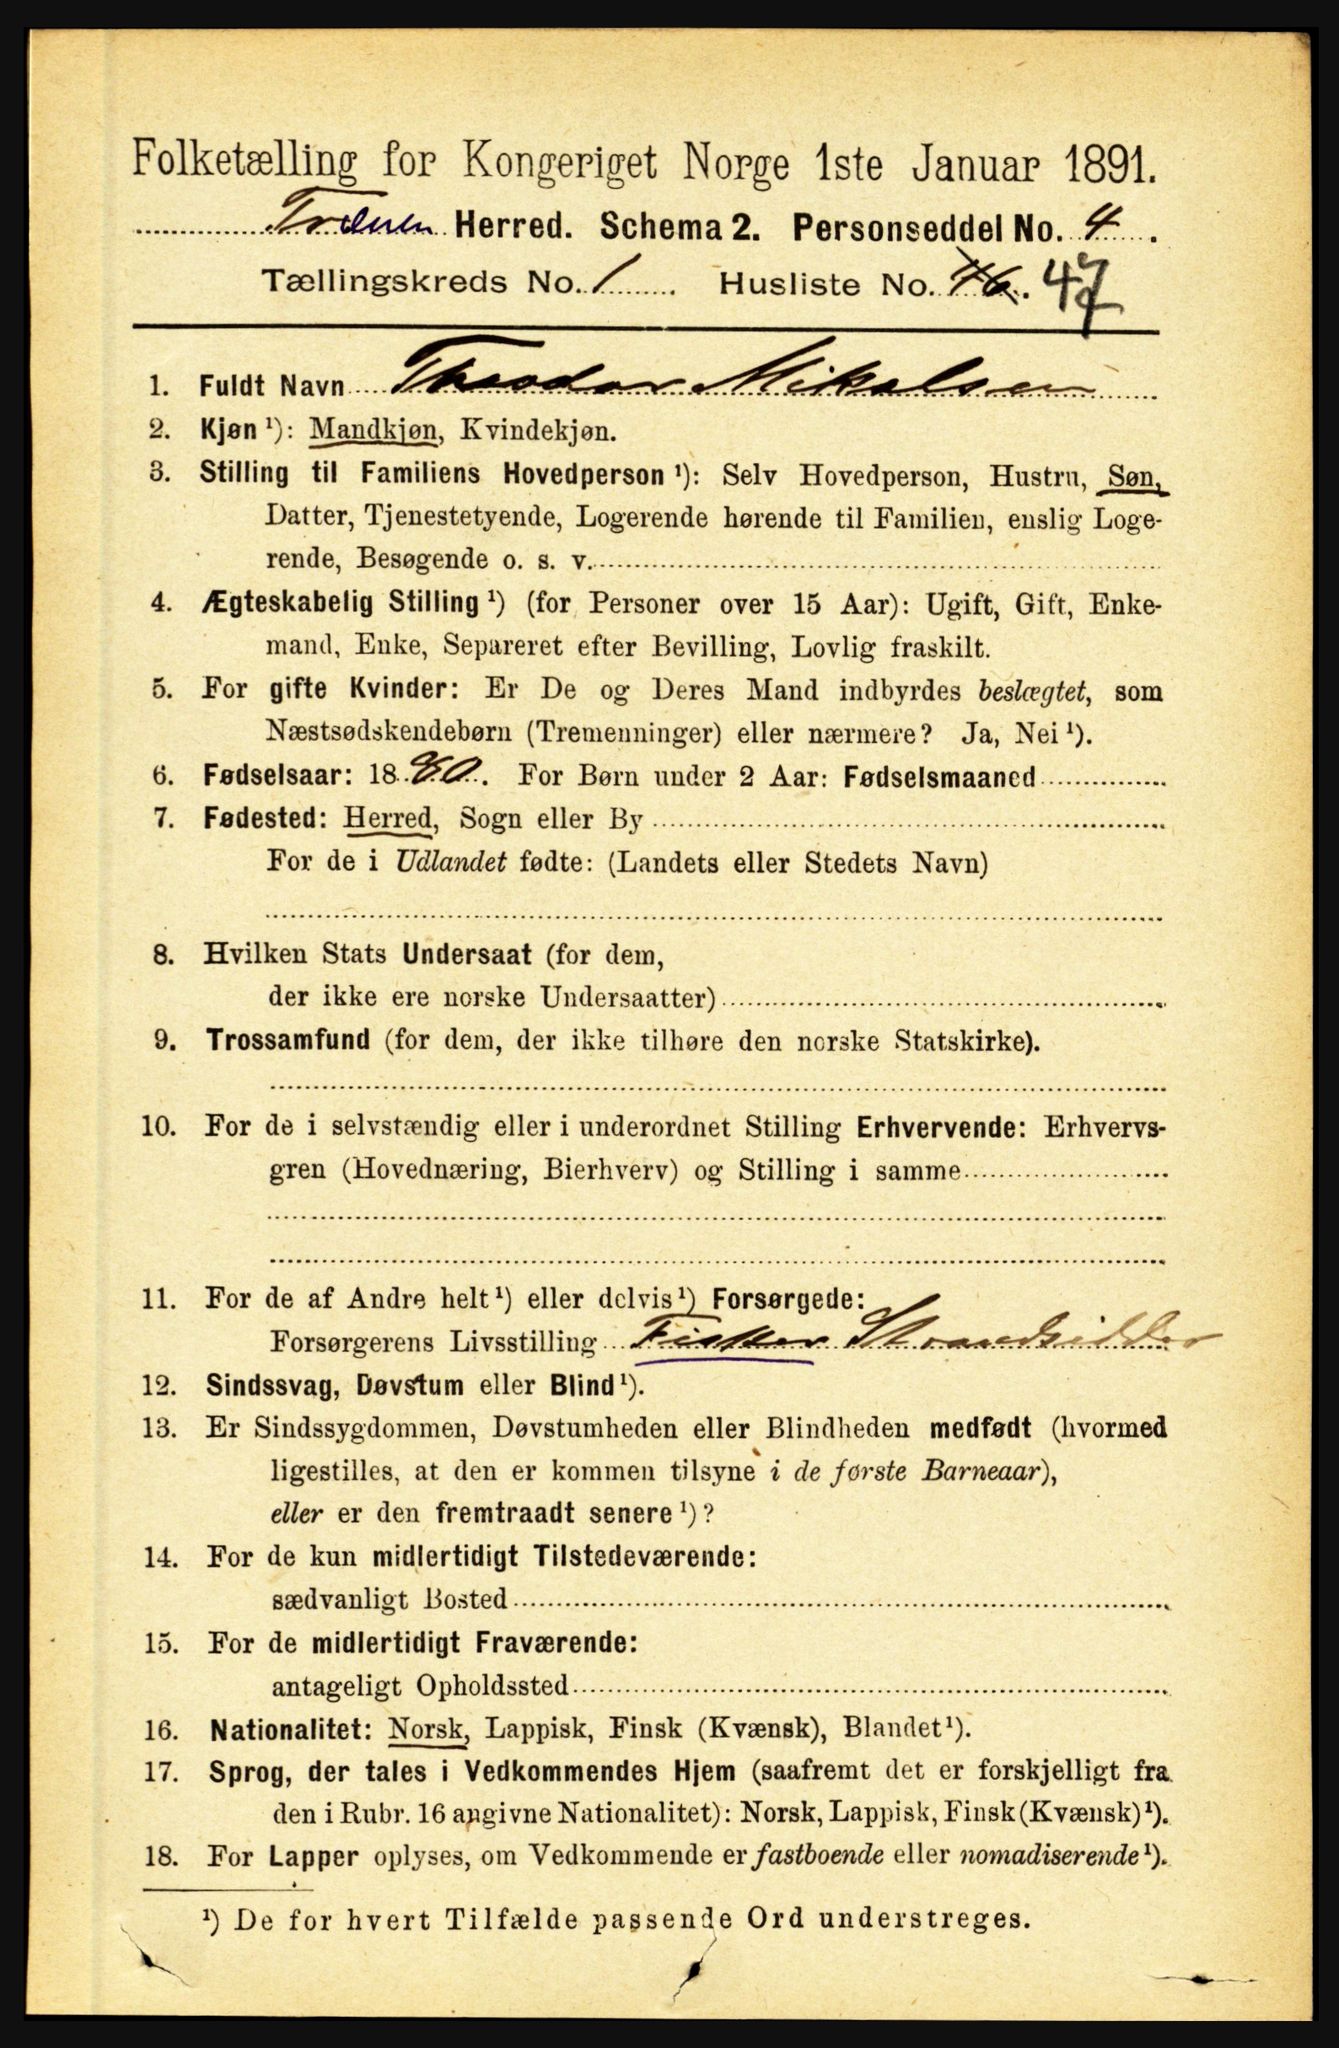 Folketælling for Kongeriget Norge 1ste Januar 1891.
Trænen Herred. Schema 2. Personseddel No. 4.
Tællingskreds No. 1. Husliste No. 46. 47
1. Fuldt Navn Theodor Mikalsen
2. Kjøn ¹): Mandkjøn, Kvindekjøn.
3. Stilling til Familiens Hovedperson ¹): Selv Hovedperson, Hustru, Søn,
Datter, Tjenestetyende, Logerende hørende til Familien, enslig Loge-
rende, Besøgende o. s. v.
4. Ægteskabelig Stilling ¹) (for Personer over 15 Aar): Ugift, Gift, Enke-
mand, Enke, Separeret efter Bevilling, Lovlig fraskilt.
5. For gifte Kvinder: Er De og Deres Mand indbyrdes beslægtet, som
Næstsødskendebørn (Tremenninger) eller nærmere? Ja, Nei ¹).
6. Fødselsaar: 1880. For Børn under 2 Aar: Fødselsmaaned
7. Fødested: Herred, Sogn eller By
For de i Udlandet fødte: (Landets eller Stedets Navn)
8. Hvilken Stats Undersaat (for dem,
der ikke ere norske Undersaatter)
9. Trossamfund (for dem, der ikke tilhøre den norske Statskirke).
10. For de i selvstændig eller i underordnet Stilling Erhvervende: Erhvervs-
gren (Hovednæring, Bierhverv) og Stilling i samme
11. For de af Andre helt ¹) eller delvis ¹) Forsørgede:
Forsørgerens Livsstilling Fisker Strandsidder
12. Sindssvag, Døvstum eller Blind ¹).
13. Er Sindssygdommen, Døvstumheden eller Blindheden medfødt (hvormed
ligestilles, at den er kommen tilsyne i de første Barneaar),
eller er den fremtraadt senere ¹)?
14. For de kun midlertidigt Tilstedeværende:
sædvanligt Bosted
15. For de midlertidigt Fraværende:
antageligt Opholdssted
16. Nationalitet: Norsk, Lappisk, Finsk (Kvænsk), Blandet ¹).
17. Sprog, der tales i Vedkommendes Hjem (saafremt det er forskjelligt fra
den i Rubr. 16 angivne Nationalitet): Norsk, Lappisk, Finsk (Kvænsk) ¹).
18. For Lapper oplyses, om Vedkommende er fastboende eller nomadiserende ¹).
¹) De for hvert Tilfælde passende Ord understreges.